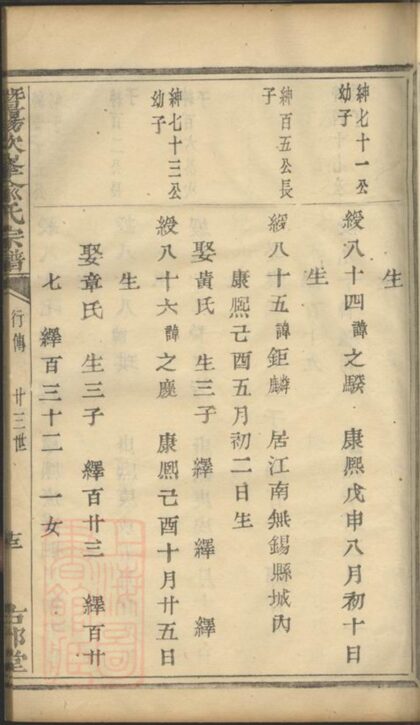 生
紳七十一公
幼子
綬八十四諱之騤 康熙戊申八月初十日
生
紳百五公長
子
綬八十五諱鉅麟 居江南無錫縣城內
康熙己酉五月初二日生
娶黄氏 生三子 繹 繹 繹
紳七十三公
幼子
綬八十六諱之塵 康熙己酉十月廿五日
生
娶章氏 生三子 繹百廿三 繹百廿
七 繹百三十二 一女
暨陽次峯俞氏宗譜
行傳 廿三世